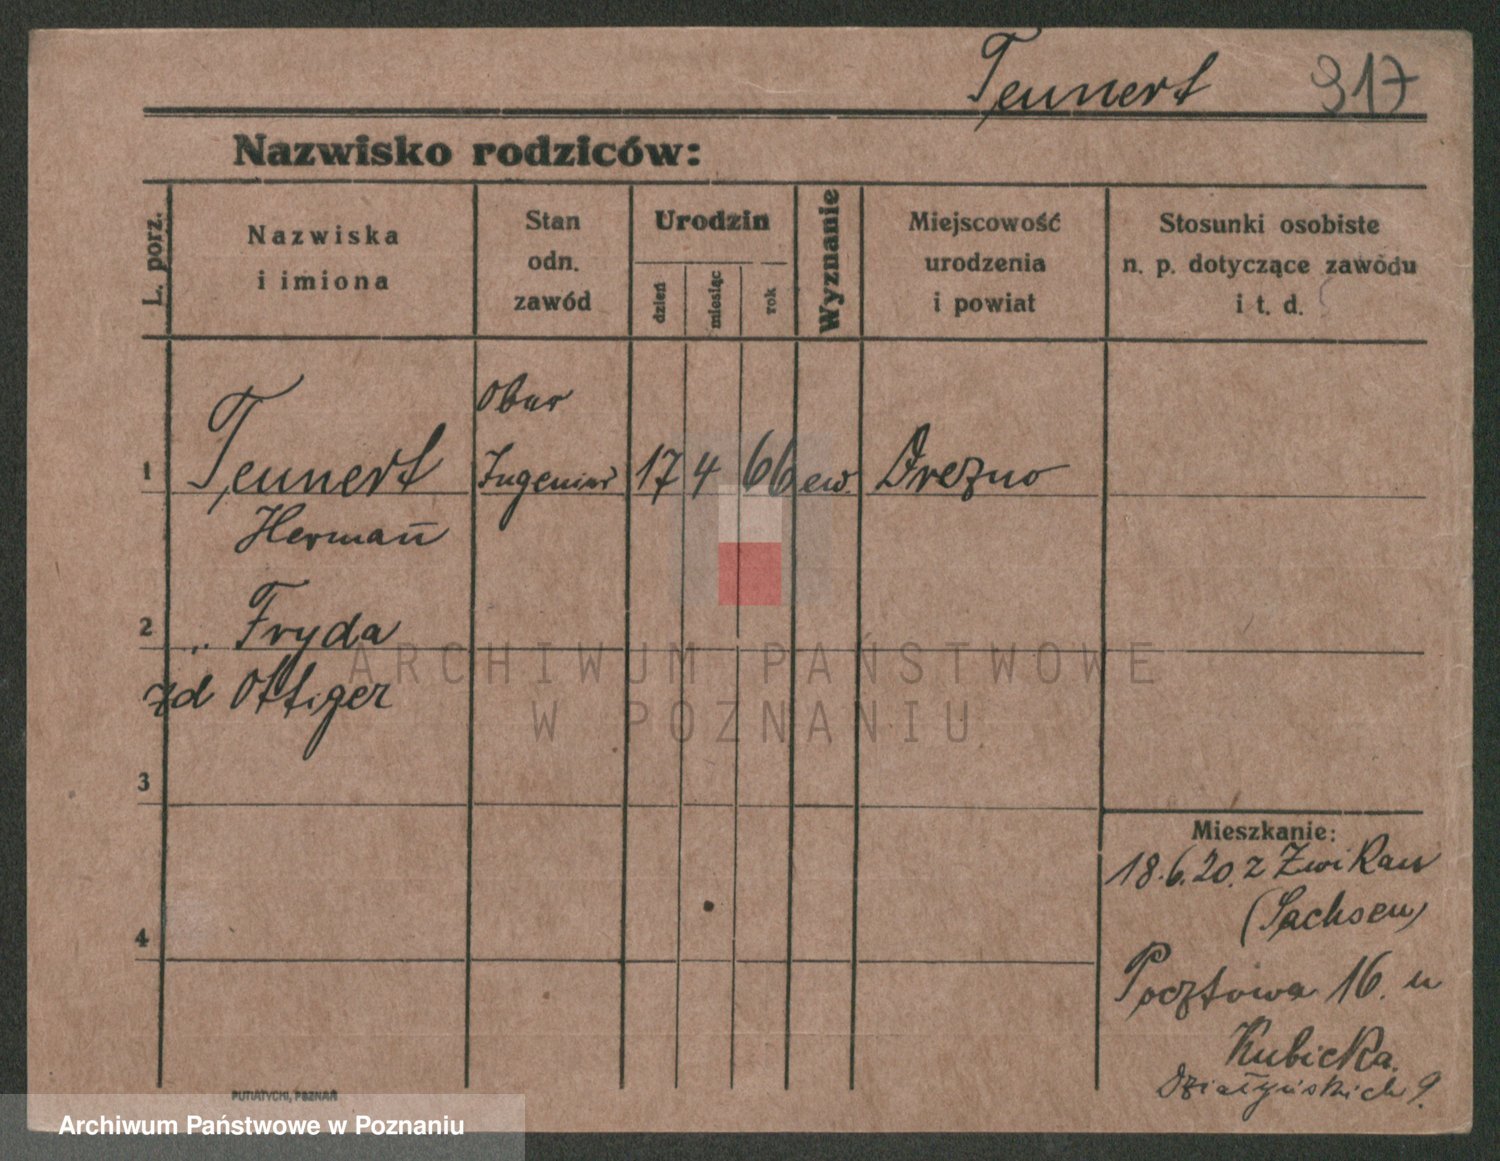 Teunert 317
Nazwisko rodziców:
L. porz.
Nazwiska
i imiona
Stan
odn.
zawód
Urodzin
dzień
miesiąc
rok
Wyznanie
Miejscowość
urodzenia
i powiat
Stosunki osobiste
n. p. dotyczące zawodu
i t. d.
Ober
1 Teunert Ingenier 17 4 66 ew. Drezno
Hermañ
2 „ Fryda
zd Ottiger
3
4
Mieszkanie:
18.6.20. z Zwikau
(Sachsen)
Pocztowa 16. u
Kubicka.
Działyńskich 9.
PUTIATYCKI, POZNAŃ
ARCHIWUM PAŃSTWOWE
W POZNANIU
Archiwum Państwowe w Poznaniu